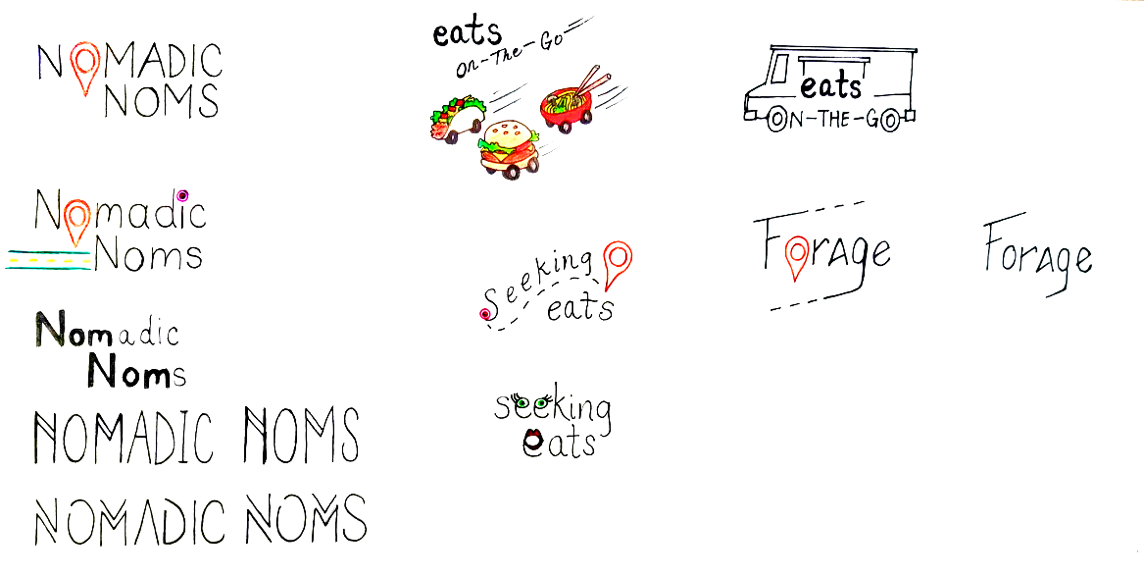 NOMADIC
NOMS
Nomadic
Noms
Nomadic
Noms
NOMADIC NOMS
NOMADIC NOMS
eats
On-The-Go
Seeking
eats
seeking
eats
eats
ON-THE-GO
ForAge
ForAge